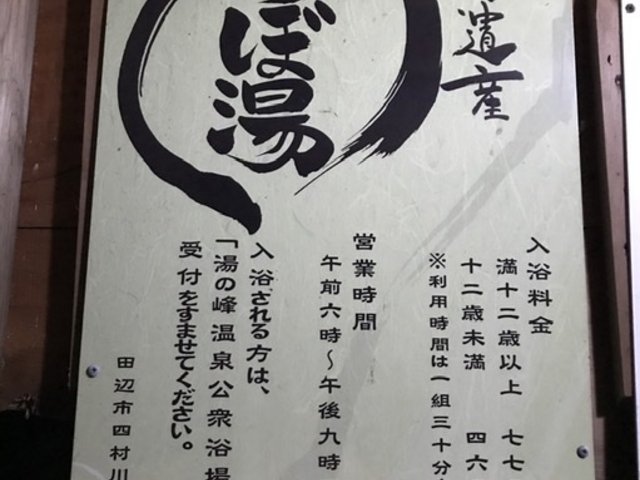 遺産
ぼ湯
入浴料金
満十二歳以上 七七
十二歳未満 四六
※利用時間は一組三十分
営業時間
午前六時～午後九時
入浴される方は、
「湯の峰温泉公衆浴場
受付をすませてください。
田辺市四村川